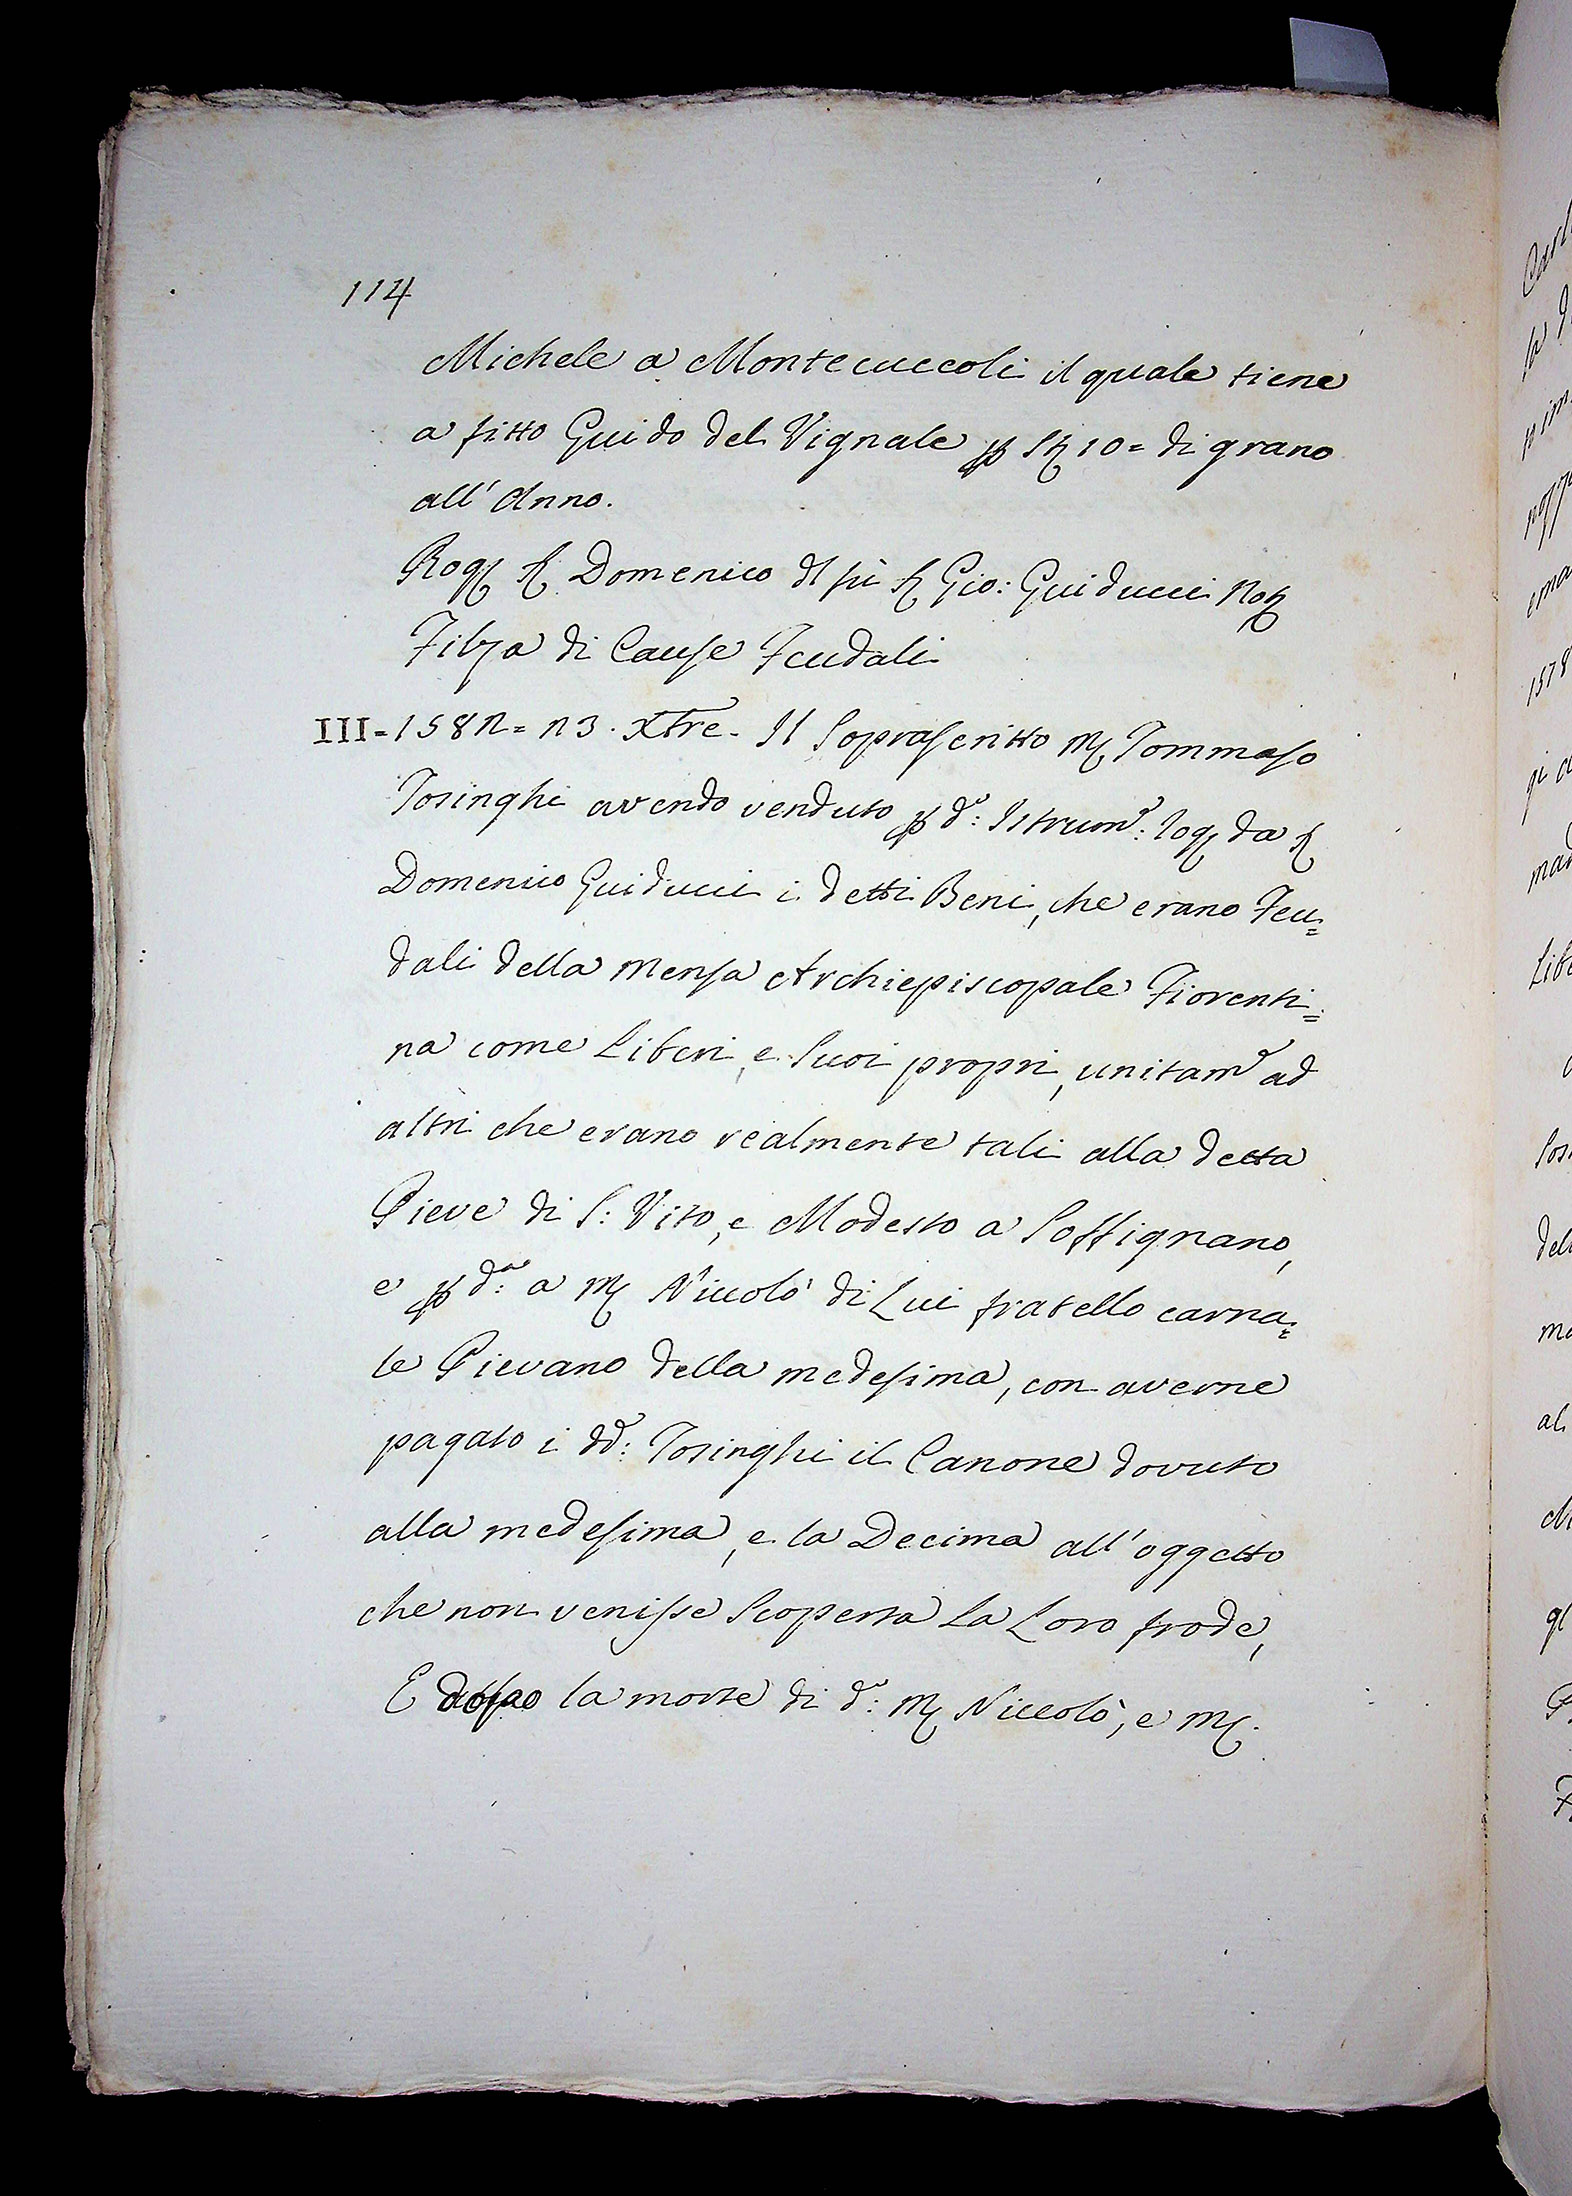 114
Michele a Montecuccoli il quale tiene
a fitto Guido del Vignale p St 10 = di grano
all' Anno.
Rog Domenico d fù Gio: Guiducci Not
Filza di Cause Feudali
III = 158n = n3. Xbre. Il Soprascritto M Tommaso
Tosinghi avendo venduto p d.º: Istrum.º: rog da
Domenico Guiducci i detti Beni, che erano Feu=
dali della Mensa Archiepiscopale Fiorenti=
na come Liberi, e Suoi propri, unitam.e ad
altri che erano realmente tali alla detta
Pieve di S: Vito, e Modesto a Soffignano,
e p d.ª: a M Niccolò di Lui fratello carna=
le Pievano della medesima, con averne
pagato i dd.i: Tosinghi il Canone dovuto
alla medesima, e la Decima all' oggetto
che non venisse Scoperta La Loro frode,
E dopo la morte di d.º: M Niccolò, e M.